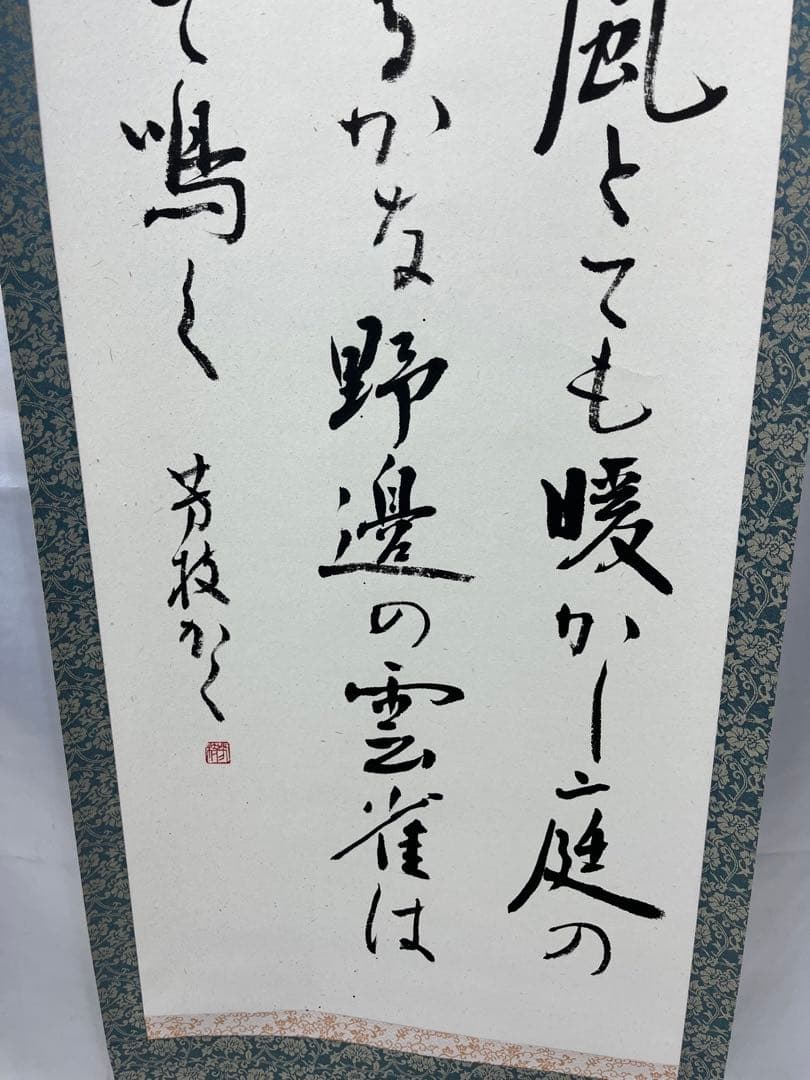 風とても暖かし庭の
るかな野邊の雲雀は
て鳴く
芳枝かく